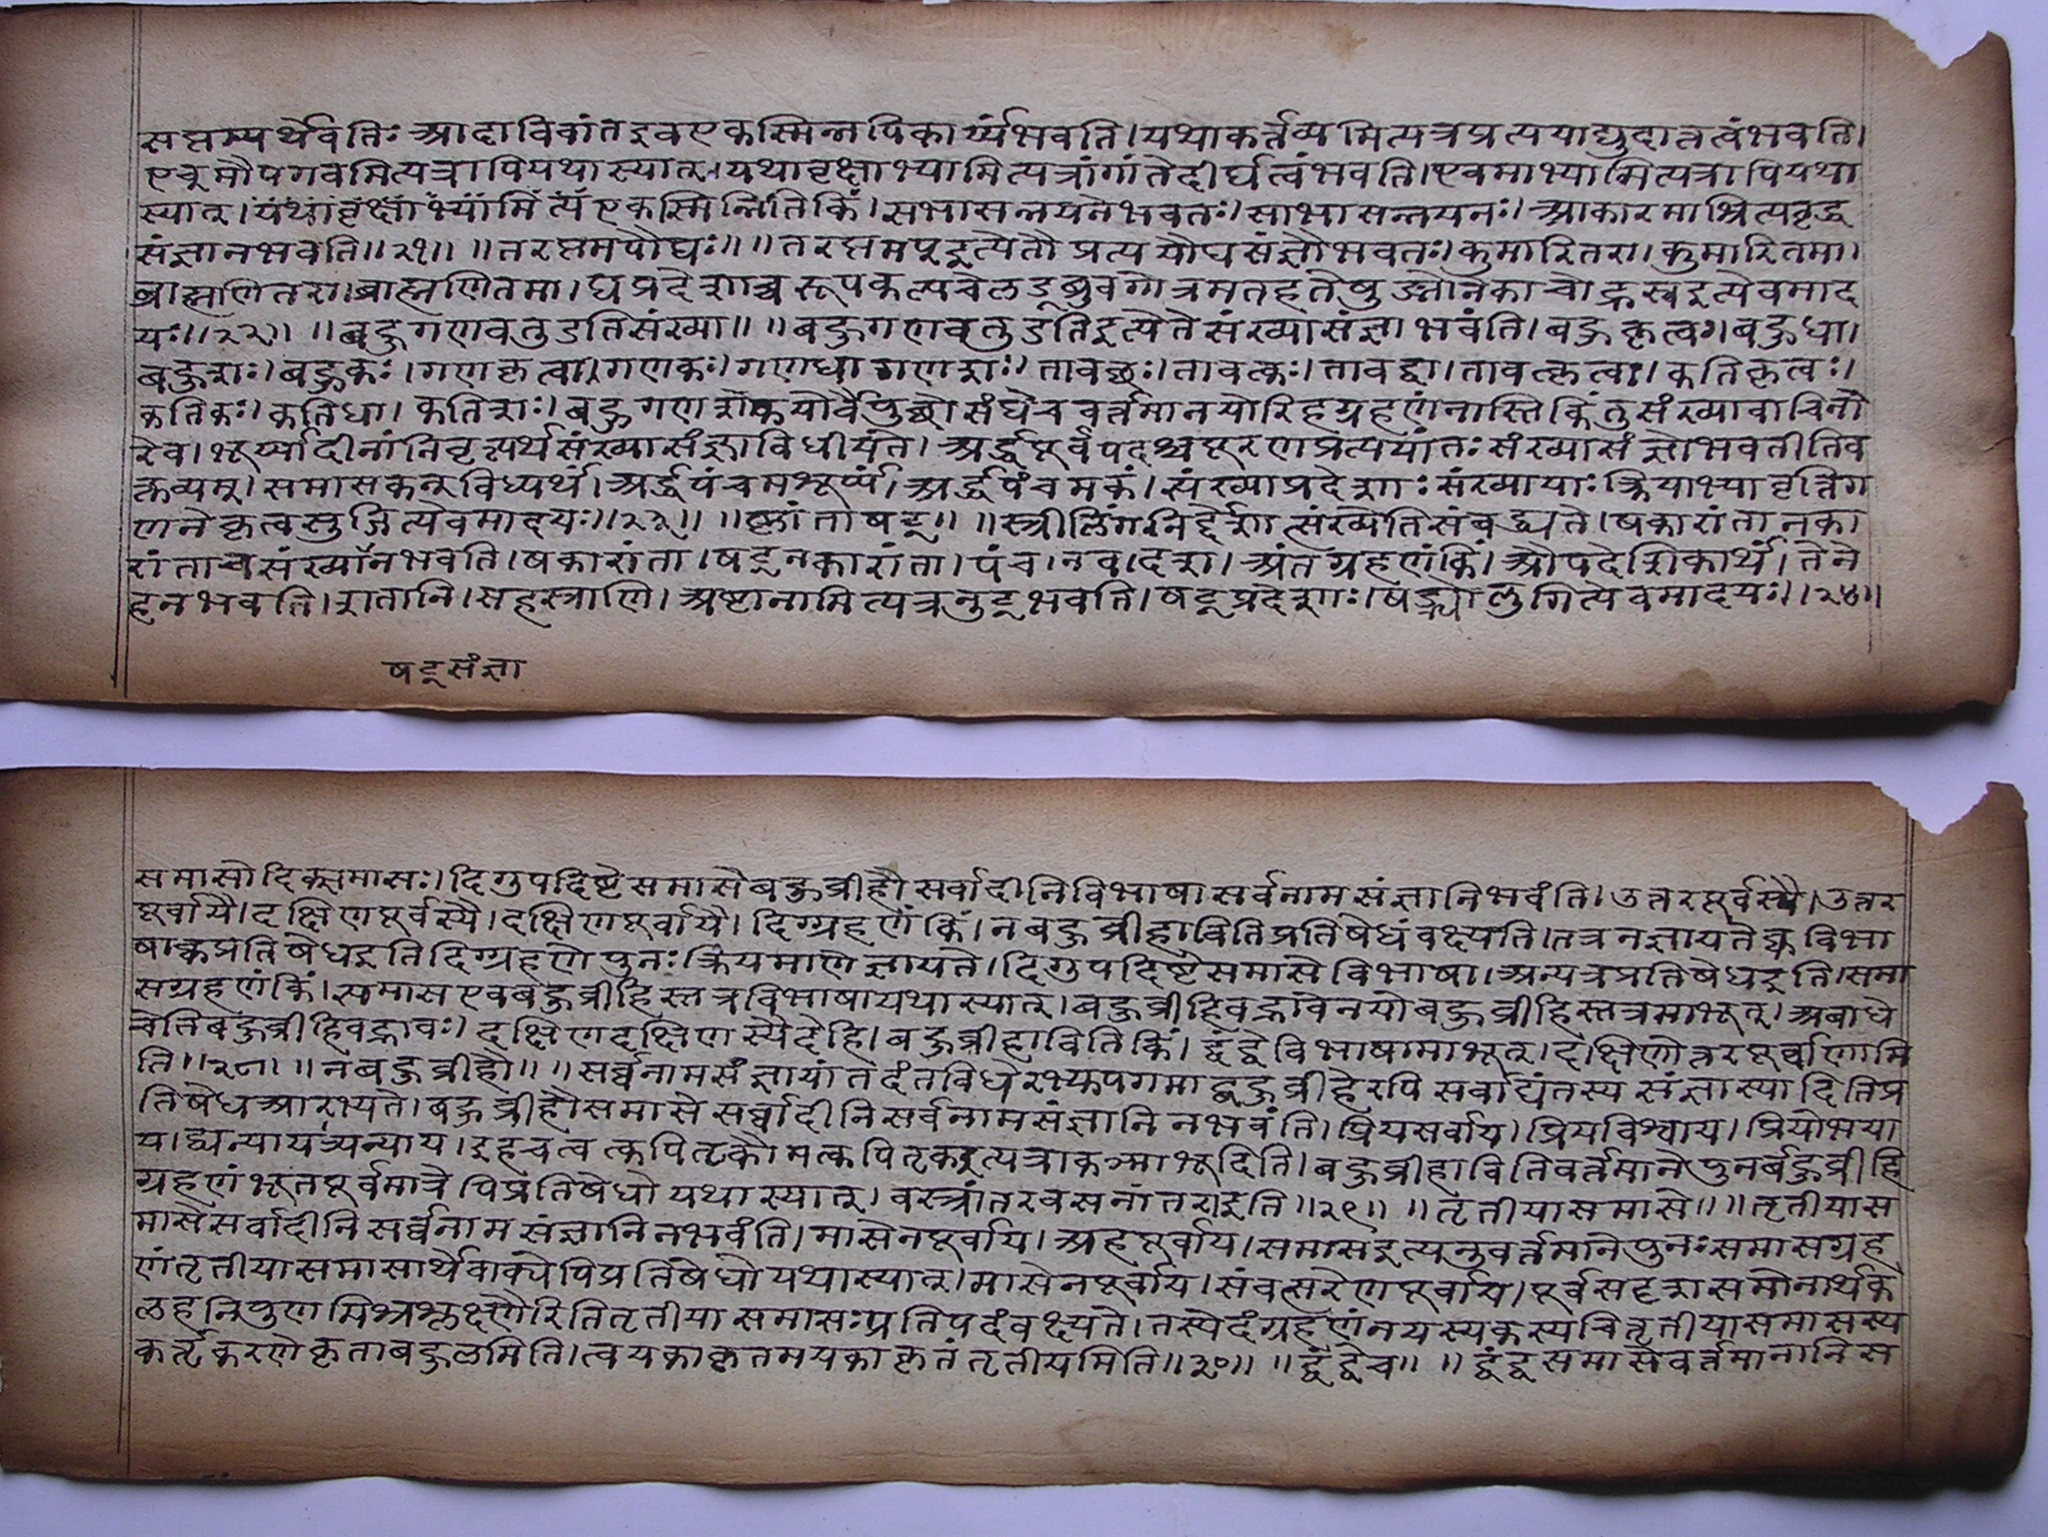 सप्तम्यर्थेवतिः आदाविवांतइवएकस्मिन्नपिकार्य्यंभवति। यथाकर्त्तव्यमित्यत्रप्रत्ययाद्युदात्तत्वंभवति।
एवमौपगवमित्यत्रापियथास्यात्। यथावृक्षाभ्यामित्यत्रांगांतेदीर्घत्वंभवति। एवमाभ्यामित्यत्रापियथा
स्यात्। यथावृक्षाभ्यामित्य एकस्मिन्नितिकिं। सभासन्नयनेभवतः। साभासन्नयनः। आकारमाश्रित्यवृद्ध
संज्ञानभवति॥२१॥ ॥तरप्तमपौघः॥ ॥तरप्तमप्इत्येतौप्रत्ययौघसंज्ञौभवतः। कुमारितरा। कुमारितमा।
ब्राह्मणितरा। ब्राह्मणितमा। घप्रदेशाश्च रूपकल्पचेलड्ब्रुवगोत्रमतहतेषुङ्योनेकाचोह्रस्वइत्येवमाद
यः॥२२॥ ॥बहुगणवतुडतिसंख्या॥ ॥बहुगणवतुडतिइत्येतेसंख्यासंज्ञाभवंति। बहुकृत्वः। बहुधा।
बहुशः। बहुकः। गणकृत्वा। गणकः। गणधा गणशः। तावच्छः। तावत्कः। तावद्धा। तावत्कृत्वः। कतिकृत्वः।
कतिकः। कतिधा। कतिशः। बहुगणशब्दयोर्वैपुल्येसंघेचवर्त्तमानयोरिहग्रहणंनास्तिकिंतुसंख्यावाचिनो
रेव। भूर्य्यादीनांनिवृत्यर्थंसंख्यासंज्ञाविधीयते। अर्द्धपूर्वपदश्चपूरणप्रत्ययांतः संख्यासंज्ञोभवतीतिव
क्तव्यम्। समासकन्विध्यर्थं। अर्द्धपंचमशूर्प्पं। अर्द्धपंचमकं। संख्याप्रदेशाः संख्यायाः क्रियाभ्यावृत्तिग
णनेकृत्वसुजित्येवमादयः॥२३॥ ॥ष्णांताषट्॥ ॥स्त्रीलिंगनिर्द्देशात्संख्येतिसंबद्ध्यते। षकारांतानका
रांताचसंख्या भवति। षकारांता। षट् नकारांता। पंच। नव। दश। अंतग्रहणंकिं। औपदेशिकार्थं। तेने
हनभवति। शतानि। सहस्त्राणि। अष्टानामित्यत्रनुट्भवति। षट्प्रदेशाः। षड्भ्योलुगित्येवमादयः॥२४॥
षट्संज्ञा
समासोदिक्समासः। दिगुपदिष्टेसमासेबहुव्रीहौसर्वादीनिविभाषासर्वनामसंज्ञानिभवंति। उत्तरपूर्वस्यै। उत्तर
पूर्वायै। दक्षिणपूर्वस्यै। दक्षिणपूर्वायै। दिग्ग्रहणंकिं। नबहुव्रीहावितिप्रतिषेधंवक्ष्यति। तत्रनज्ञायतेक्वविभा
षाक्वप्रतिषेधइतिदिग्ग्रहणेपुनः क्रियमाणेज्ञायते। दिगुपदिष्टेसमासेविभाषा। अन्यत्रप्रतिषेधइति। समा
सग्रहणंकिं। समासएवबहुव्रीहिस्तत्रविभाषायथास्यात्। बहुव्रीहिवद्भावेनयोबहुव्रीहिस्तत्रमाभूत्। अबाधे
चेतिबहुव्रीहिवद्भावः। दक्षिणदक्षिणस्यैदेहि। बहुव्रीहावितिकिं। द्वंद्वेविभाषामाभूत्। दक्षिणोत्तरपूर्वाणामि
ति॥२८॥ ॥नबहुव्रीहौ॥ ॥सर्व्वनामसंज्ञायांतदंतविधेरभ्युपगमाद्बहुव्रीहेरपिसर्वाद्यंतस्यसंज्ञास्यादितिप्र
तिषेधआरभ्यते। बहुव्रीहौसमासेसर्व्वादीनिसर्वनामसंज्ञानिनभवंति। प्रियसर्वाय। प्रियविश्वाय। प्रियोभया
य। द्व्यन्यायत्र्यन्याय। इहचत्वत्कपितृकोमत्कपितृकइत्यत्राकज्माभूदिति। बहुव्रीहावितिवर्त्तमानेपुनर्बहुव्रीहि
ग्रहणंभूतपूर्वमात्रेपिप्रतिषेधोयथास्यात्। वस्त्रांतरवसनांतराइति॥२९॥ ॥तृतीयासमासे॥ ॥तृतीयास
मासेसर्वादीनिसर्व्वनामसंज्ञानिनभवंति। मासेनपूर्वाय। अहपूर्वाय। समासइत्यनुवर्त्तमानेपुनः समासग्रह
णंतृतीयासमासार्थेवाक्येपिप्रतिषेधोयथास्यात्। मासेनपूर्वाय। संवत्सरेणपूर्वाय। पूर्वसदृशसमोनार्थक
लहनिपुणमिश्रश्लक्ष्णैरितितृतीयासमासः प्रतिपदंवक्ष्यते। तस्येदंग्रहणंनयस्यकस्यचितृतीयासमासस्य
कर्तृकरणेकृताबहुलमिति। त्वयकाकृतमयकाकृतंतृतीयमिति॥३०॥ ॥द्वंद्वेच॥ ॥द्वंद्वसमासेवर्त्तमानानिस